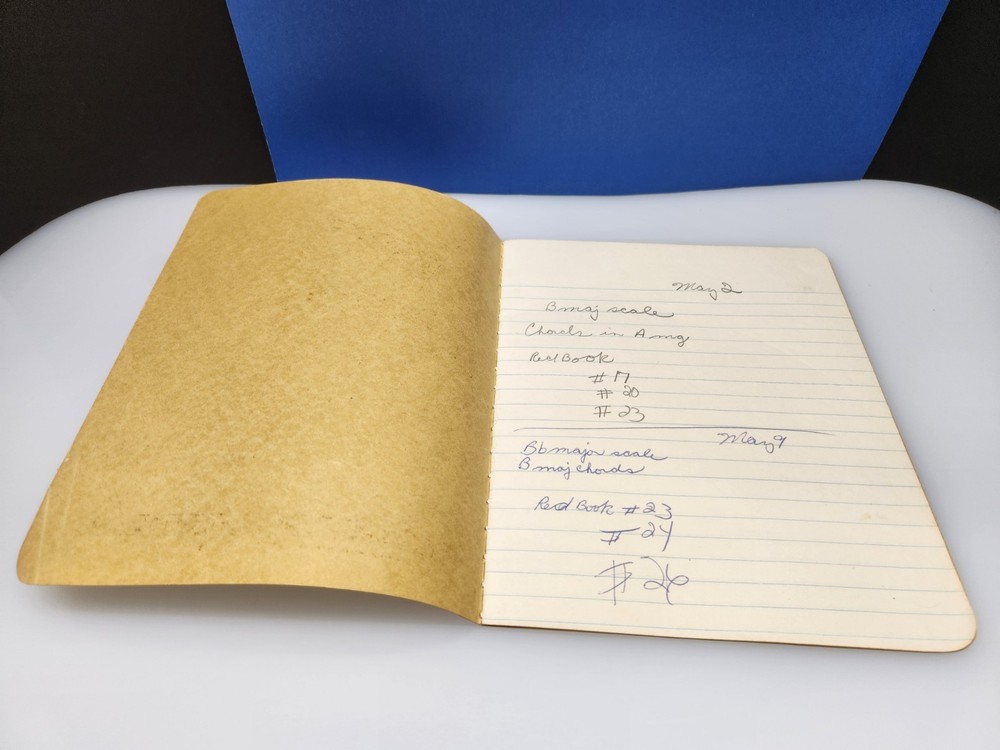 May 2
B maj scale
Chords in A mg
Red Book
# 17
# 20
# 23
May 9
Bb major scale
B maj chords
Red Book # 23
# 24
# 26